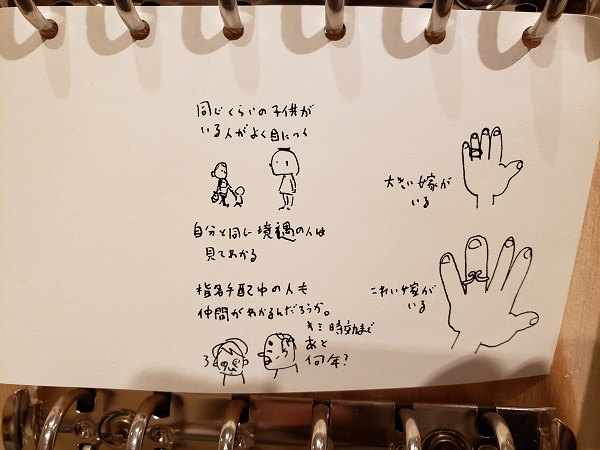 同じくらいの子供が
いる人がよく目につく
自分と同じ境遇の人は
見てわかる
指名手配中の人も
仲間がわかるんだろうか。
キミ時効まで
あと
何年?
大きい嫁が
いる
こわい嫁が
いる